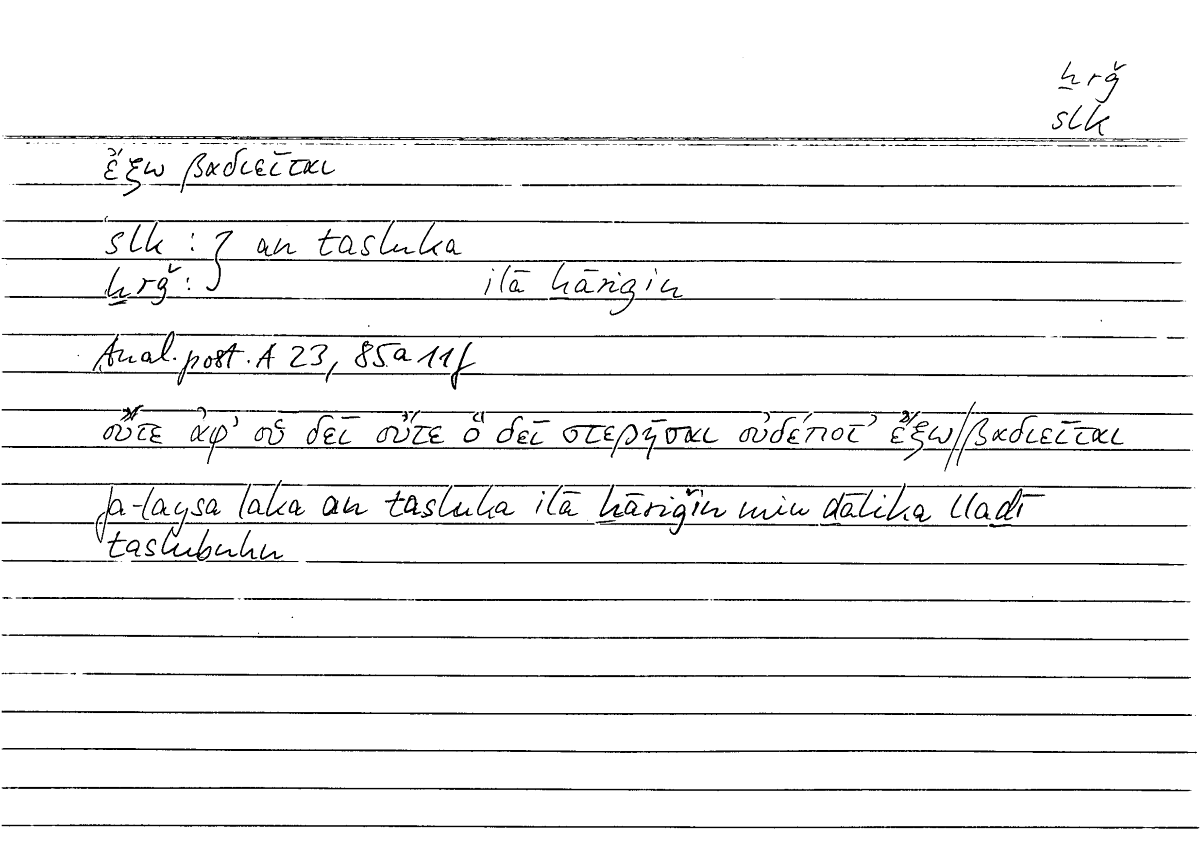 ẖrǧ
slk
ἔξω βαδιεῖται
slk : } an tasluka
ẖrǧ : } ilā ẖāriǧin
Anal. post. A 23, 85a11f
οὔτε ἀφ' οὗ δεῖ οὔτε ὃ δεῖ στερῆσαι οὐδέποτ' ἔξω//βαδιεῖται
fa-laysa laka an tasluka ilā ẖāriǧin min ḏālika llaḏī
taslubuhu